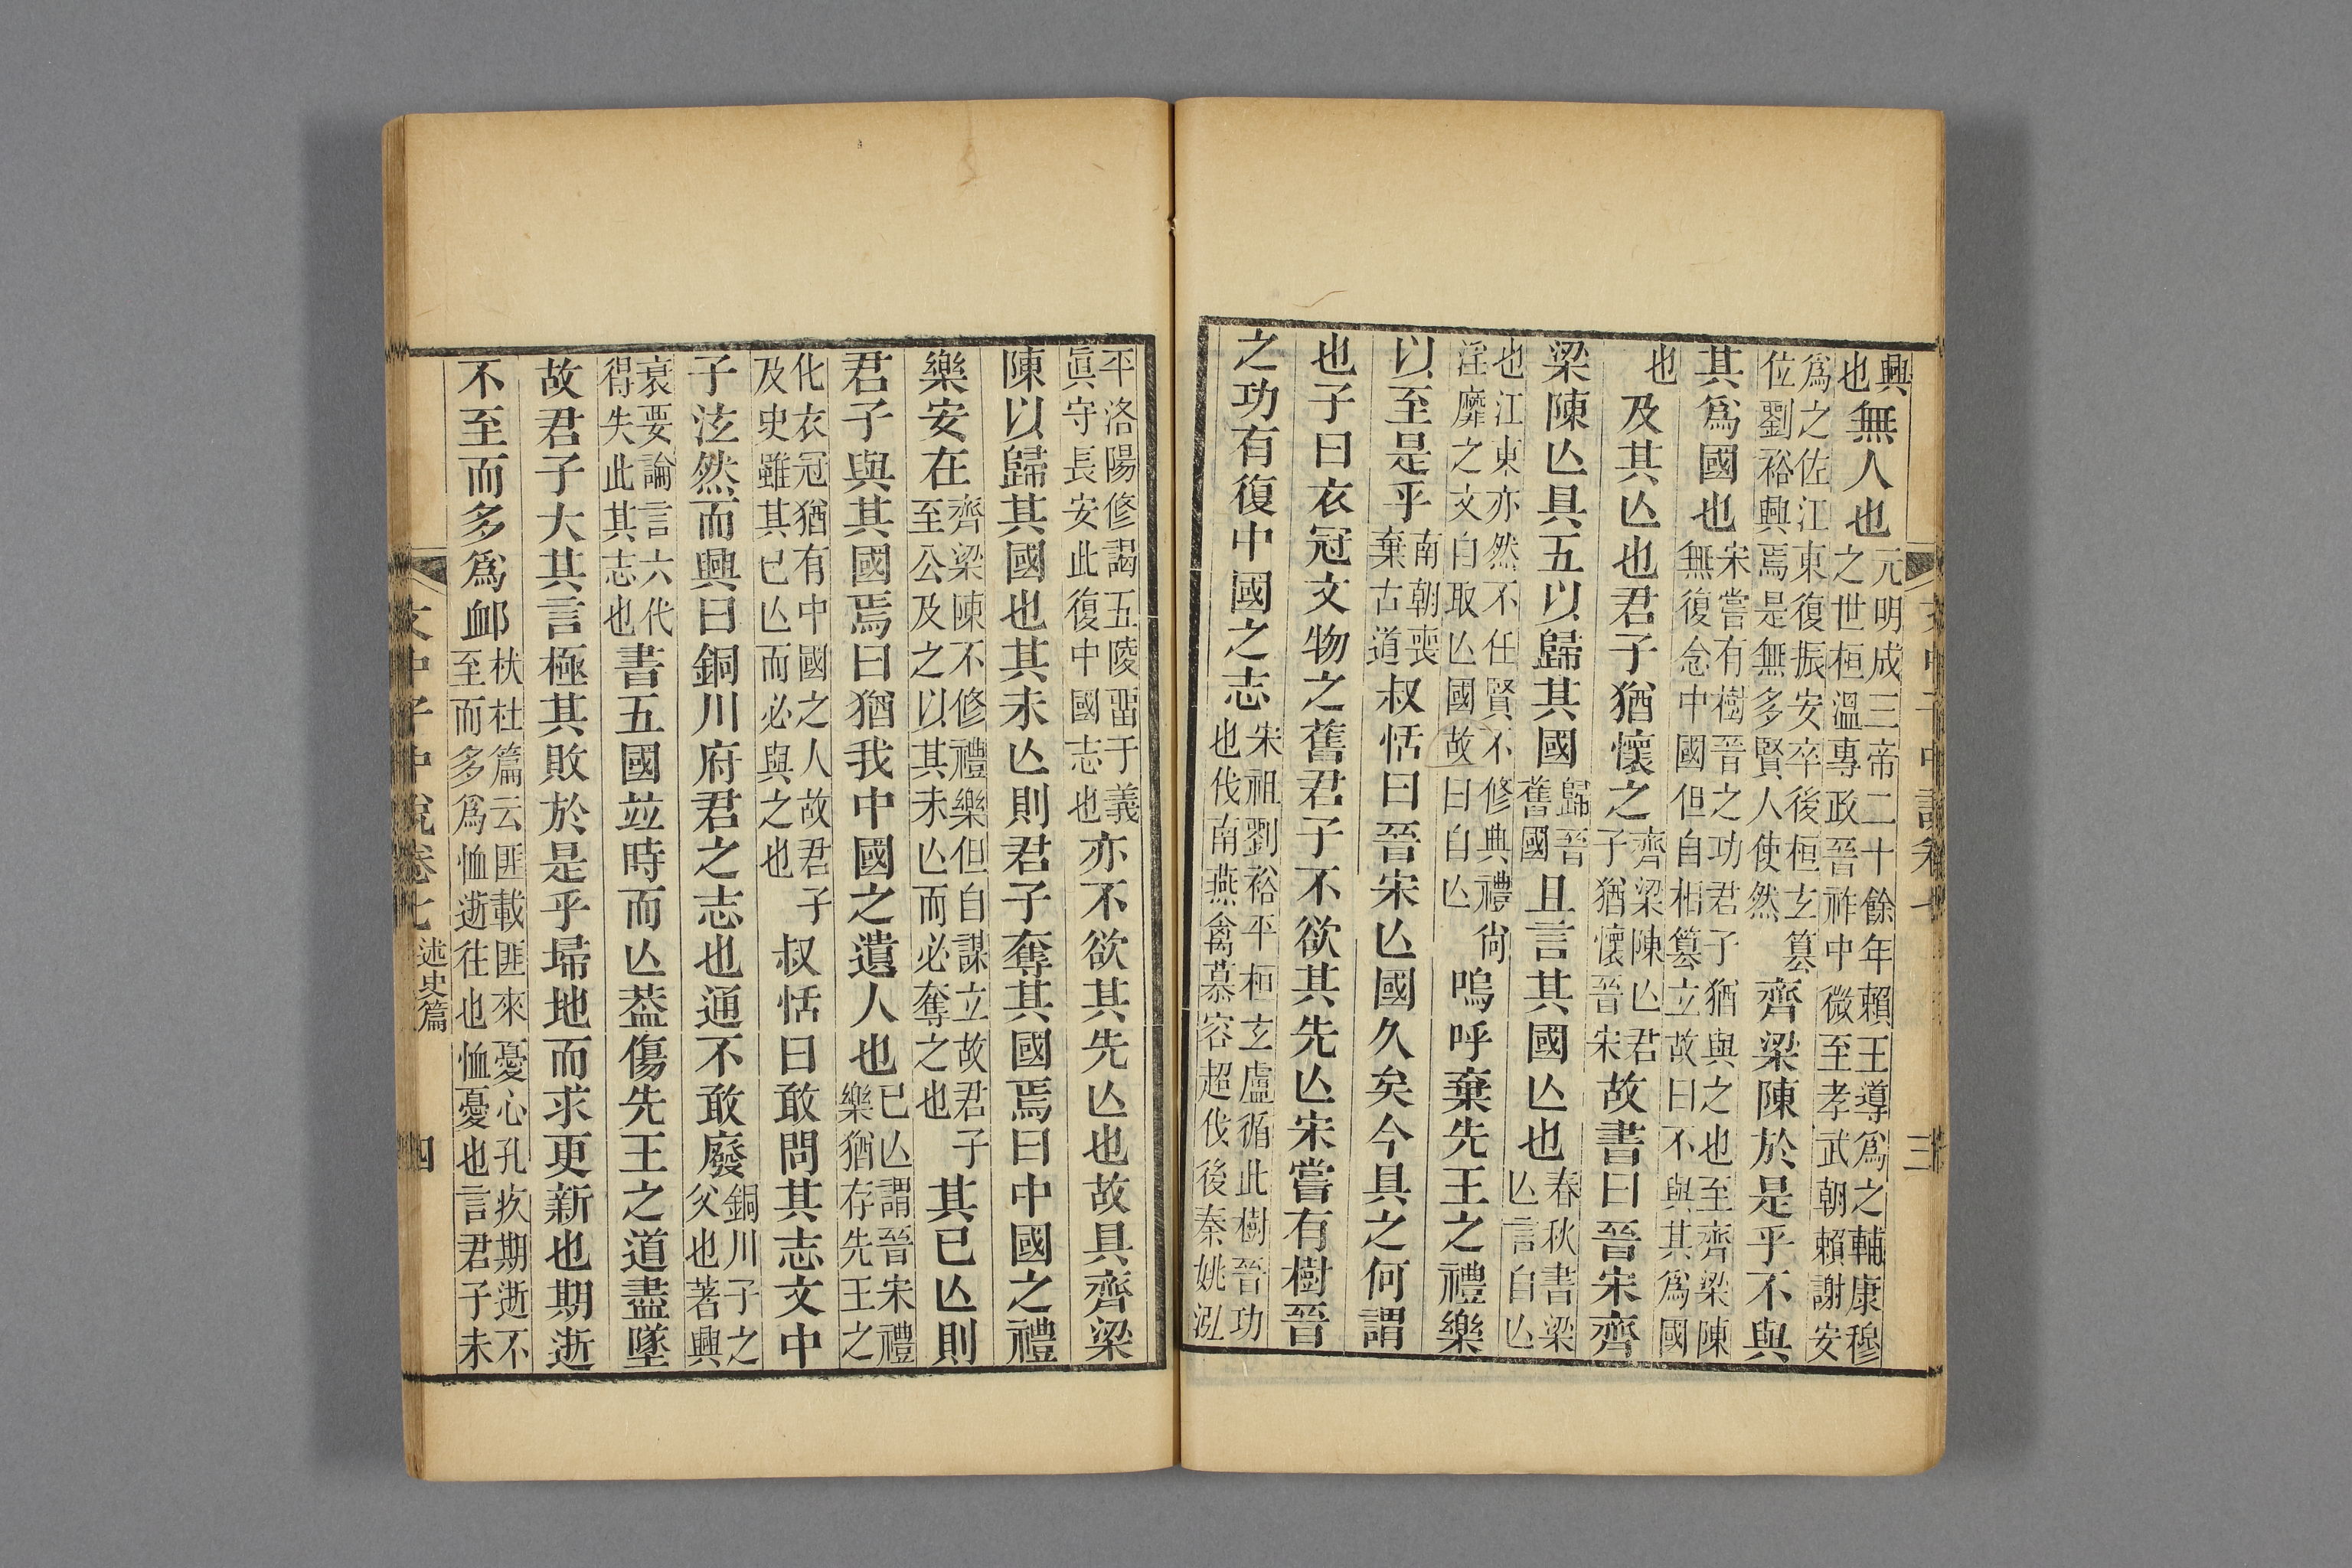 興也無人也元明成三帝二十餘年賴王導爲之輔康穆之世桓溫專政晉祚中微至孝武朝賴謝安
爲之佐江東復振安卒後桓玄篡位劉裕興焉是無多賢人使然齊梁陳於是乎不與
其爲國也宋嘗有樹晉之功君子猶與之也至齊梁陳無復念中國但自相篡立故曰不與其爲國
也及其亾也君子猶懷之齊梁陳亾君子猶懷晉宋故書曰晉宋齊
梁陳亾具五以歸其國歸晉舊國且言其國亾也春秋書梁亾言自亾
也江東亦然不任賢不修典禮尙淫靡之文自取亾國故曰自亾嗚呼棄先王之禮樂
以至是乎南朝喪棄古道叔恬曰晉宋亾國久矣今具之何謂
也子曰衣冠文物之舊君子不欲其先亾宋嘗有樹晉
之功有復中國之志宋祖劉裕平桓玄盧循此樹晉功也伐南燕禽慕容超伐後秦姚泓
三
平洛陽修謁五陵畱于義眞守長安此復中國志也亦不欲其先亾也故具齊梁
陳以歸其國也其未亾則君子奪其國焉曰中國之禮
樂安在齊梁陳不修禮樂但自謀立故君子至公及之以其未亾而必奪之也其已亾則
君子與其國焉曰猶我中國之遺人也已亾謂晉宋禮樂猶存先王之
化衣冠猶有中國之人故君子及史雖其已亾而必與之也叔恬曰敢問其志文中
子泫然而興曰銅川府君之志也通不敢廢銅川子之父也著興
衰要論言六代得失此其志也書五國竝時而亾葢傷先王之道盡墜
故君子大其言極其敗於是乎埽地而求更新也期逝
不至而多爲衈杕杜篇云匪載匪來憂心孔疚期逝不至而多爲恤逝往也恤憂也言君子未
文中子中說卷七 述史篇 四